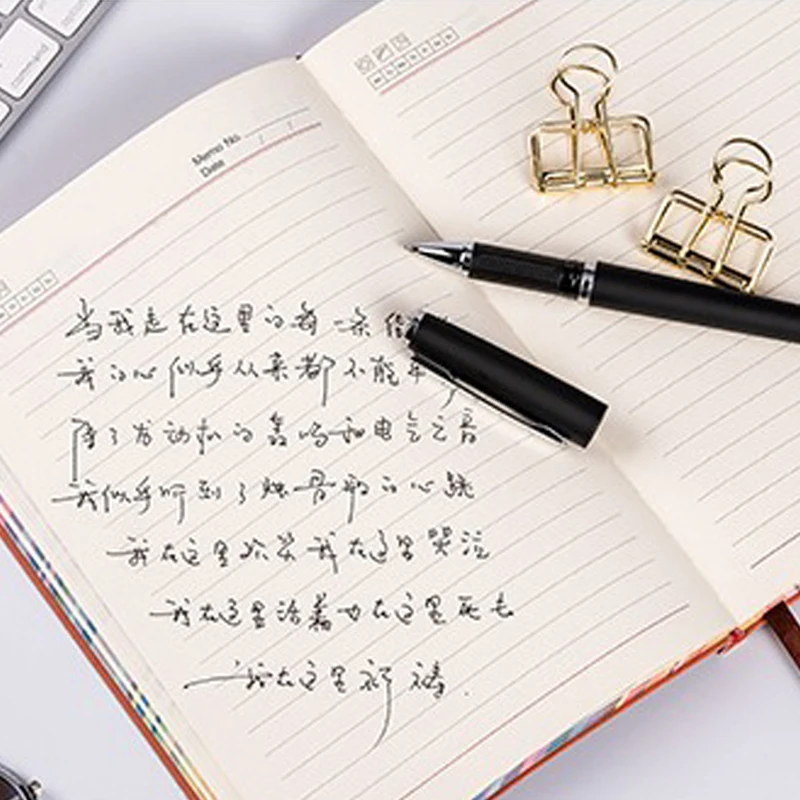 command
Memo No.
Date
当我走在这里的每一条
我的心似乎从来都不能平
除了发动机的轰鸣和电气之音
我似乎听到了烛骨般的心跳
我在这里欢笑我在这里哭泣
我在这里活着也在这里死去
我在这里祈祷.